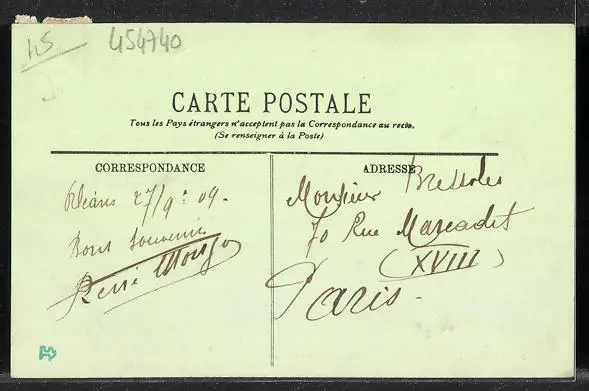 HS
454740
CARTE POSTALE
Tous les Pays étrangers n'acceptent pas la Correspondance au recto.
(Se renseigner à la Poste)
CORRESPONDANCE
Orléans 27/9 : 09.
Bons souvenirs
René
ADRESSE
Monsieur Bressoles
70 Rue Marcadet
(XVIII)
Paris.